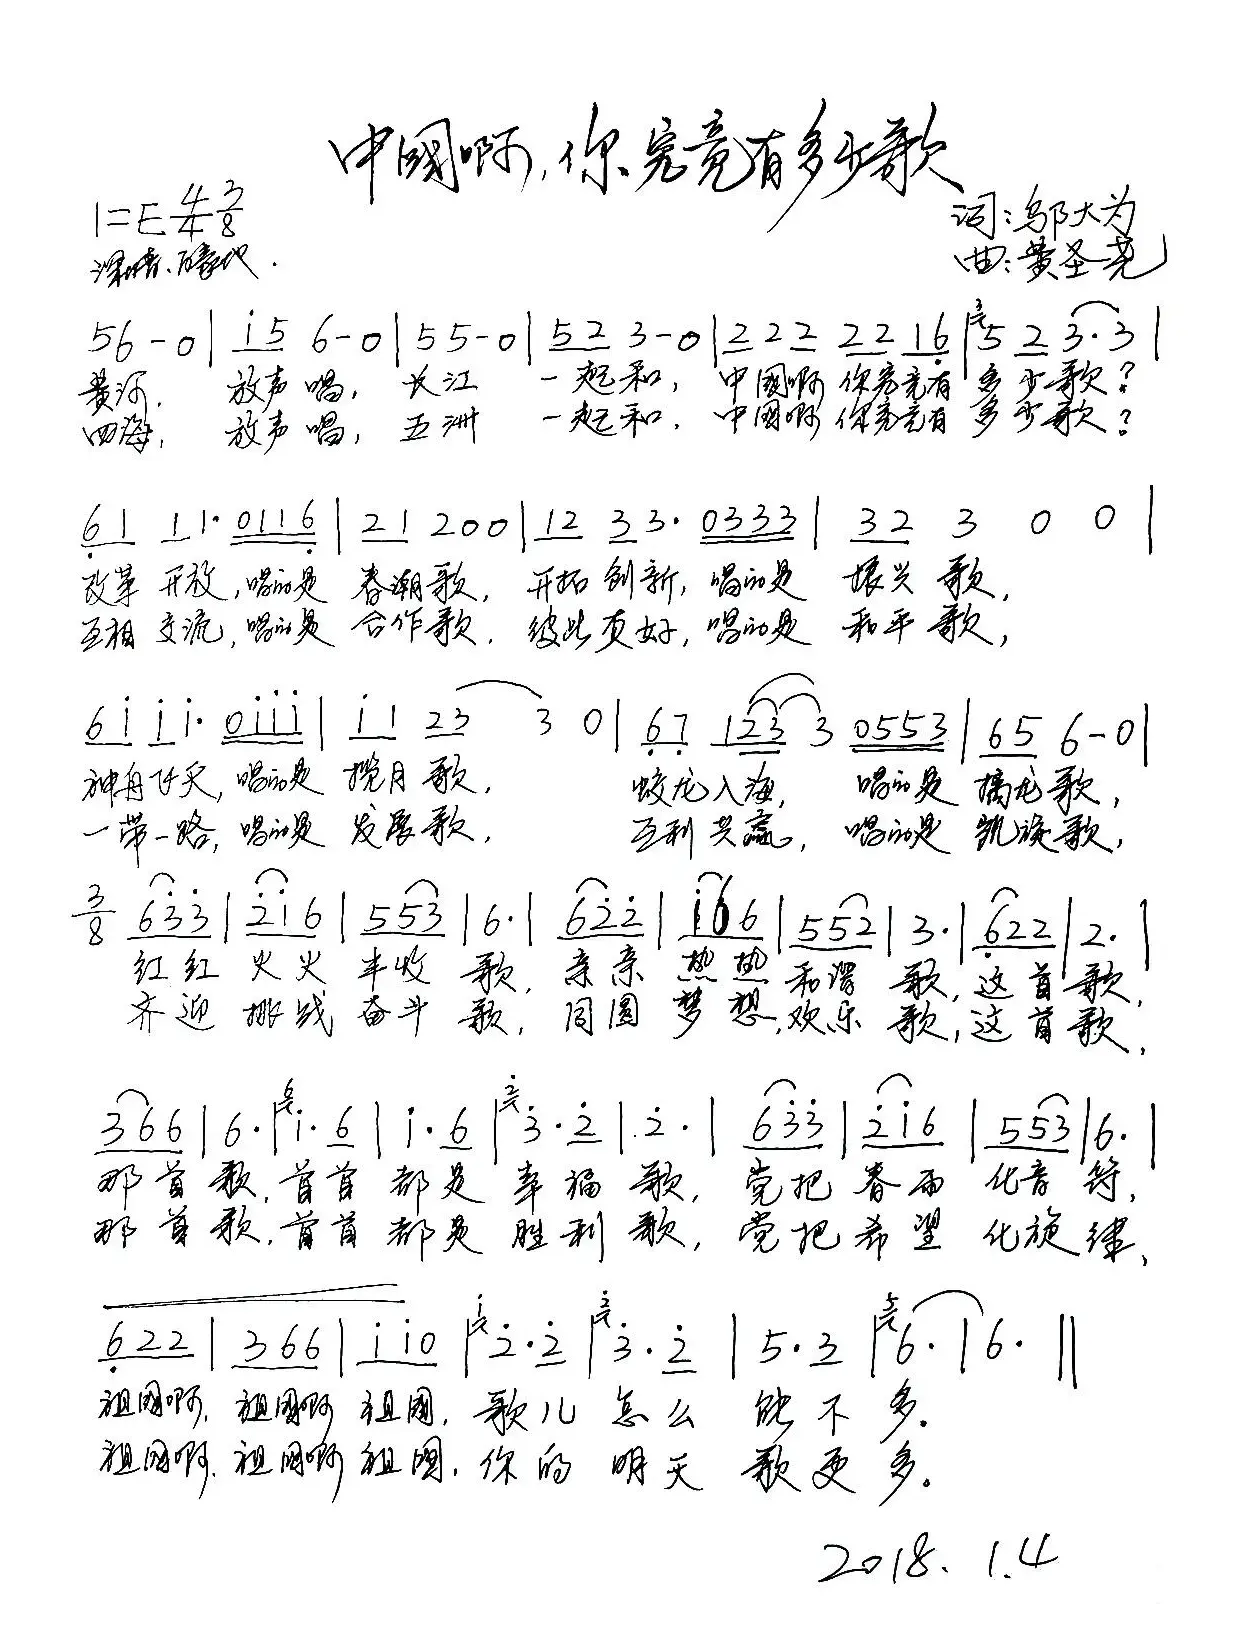 中國啊,你究竟有多少歌
1=E 4/4 3/8
词:邬大为
深情、自豪地.
曲:黄圣尧
56-0| i5 6-0|55-0|52 3-0|222 22 16|5 2 3·3|
黄河, 放声唱, 长江 一起和, 中國啊 你究竟有 多少歌?
四海, 放声唱, 五洲 一起和, 中國啊 你究竟有 多少歌?
61 11· 0116|21 200|12 33· 0333| 32 3 0 0|
改革 开放,唱的是 春潮歌, 开拓创新,唱的是 振兴歌,
互相 交流,唱的是 合作歌, 彼此友好,唱的是 和平歌,
6i ii· 0iii| i1 23 3 0|67 123 3 0553|65 6-0|
神舟飞天,唱的是 揽月歌, 蛟龙入海, 唱的是 擒龙歌,
一带一路,唱的是 发展歌, 互利共赢, 唱的是 凯旋歌,
3/8 633|2i6|553|6·|622|i66|552|3·|622|2·|
红红 火火 丰收 歌,亲亲 热热 和谐 歌,这首歌,
齐迎 挑战 奋斗 歌,同圆 梦想,欢乐 歌,这首歌,
366|6·|i·6|i·6|3·2|2·|633|2i6|553|6·|
那首歌,首首 都是 幸福 歌, 党把 春雨 化音符,
那首歌,首首 都是 胜利 歌, 党把 希望 化旋律,
622|366|ii0|2·2|3·2|5·3|6·|6·‖
祖国啊,祖国啊 祖国, 歌儿 怎么 能不 多.
祖国啊,祖国啊 祖国, 你的 明天 歌更 多.
2018.1.4